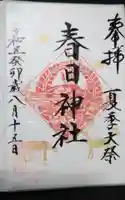 奉拝
夏季大祭
春日神社
癸卯歳八月十五日